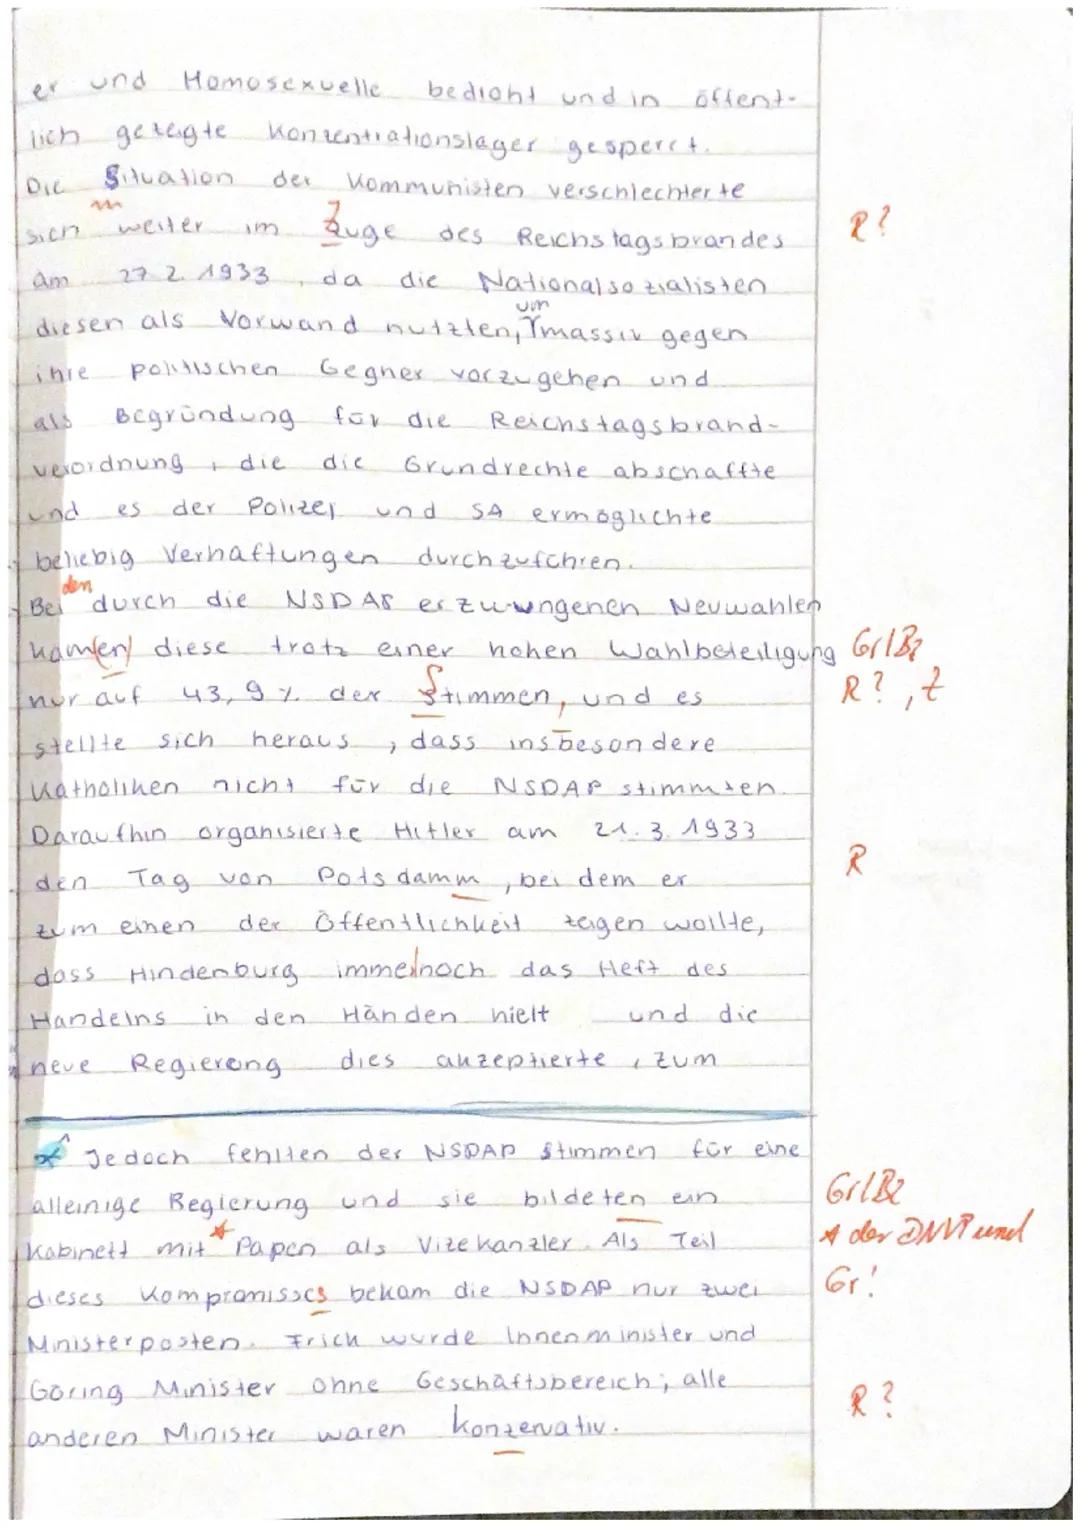 er und Homosexuelle bedroht und in öffent-
lich gezeigte Konzentrationslager gesperrt.
Die Situation der Kommunisten verschlechterte
sich weiter im Zuge des Reichstagsbrandes
R?
am 27.2.1933, da die Nationalsozialisten
um
diesen als Vorwand nutzten, massiv gegen
ihre politischen Gegner vorzugehen und
als Begründung für die Reichstagsbrand-
verordnung, die die Grundrechte abschaffte
und es der Polizei und SA ermöglichte
beliebig Verhaftungen durchzuführen.
den
Bei durch die NSDAP erzwungenen Neuwahlen
kam(en) diese trotz einer hohen Wahlbeteiligung
Gr/Bz
nur auf 43,9 % der Stimmen, und es
R?, Z
stellte sich heraus, dass insbesondere
Katholiken nicht für die NSDAP stimmten.
Daraufhin organisierte Hitler am 21.3.1933
R
den Tag von Potsdamm, bei dem er
zum einen der Öffentlichkeit zeigen wollte,
dass Hindenburg immernoch das Heft des
Handelns in den Händen hielt und die
neue Regierung dies akzeptierte, zum
* Jedoch fehlten der NSDAP Stimmen für eine
alleinige Regierung und sie bildeten ein
Gr/Bz
Kabinett mit * Papen als Vizekanzler. Als Teil
* der DNVP und
dieses Kompromisses bekam die NSDAP nur zwei
Gr!
Ministerposten. Frick wurde Innenminister und
Göring Minister ohne Geschäftsbereich; alle
R?
anderen Minister waren konzervativ.